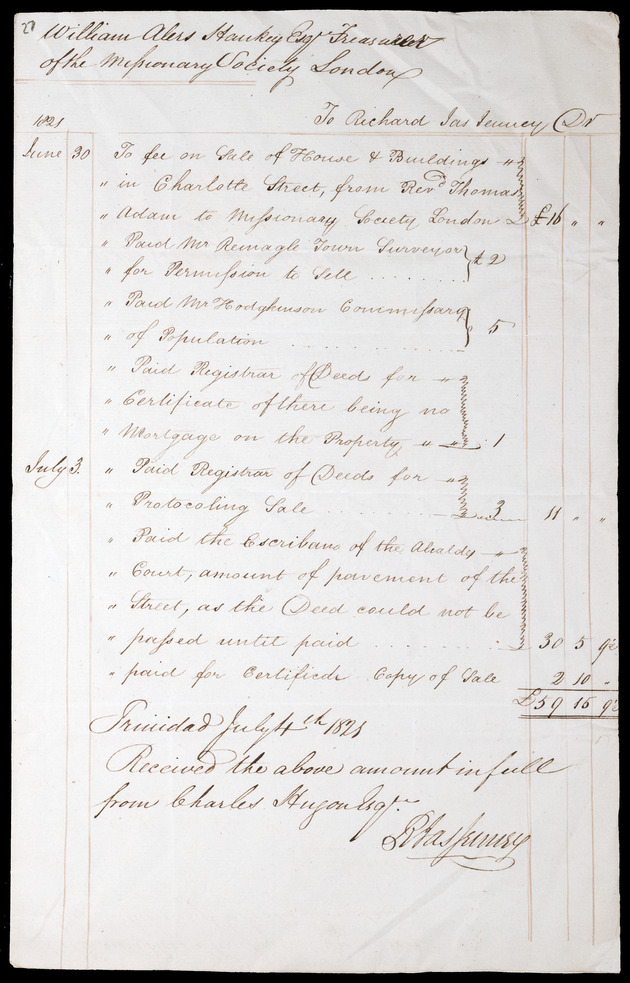 27
William Alers Hankey Esqr. Treasurer
of the Missionary Society London
To Richard Jas Jenney Dr
1821
June 30 To fee on Sale of House & Buildings "
" in Charlotte Street, from Revd. Thomas
" Adam to Missionary Society London £16 " "
" Paid Mr Reinagle Town Surveyor
" for Permission to Sell . . . . . . . £2
" Paid Mr Hodgkinson Commissary
" of Population . . . . . . . . . . . . 5
" Paid Registrar of Deeds for "
" Certificate of there being no
" Mortgage on the Property " " 1
July 3. " Paid Registrar of Deeds for "
" Protocoling Sale . . . . . . . . . 3 11 " "
" Paid the Escribano of the Alcaldy "
" Court, amount of pavement of the
" Street, as the Deed could not be
" passed until paid . . . . . . . . . 30 5 9½
" paid for Certificde Copy of Sale 2 10 "
£59 15 9½
Trinidad July 4th 1821
Received the above amount in full
from Charles Hugon Esqr.
R Jas Jenney